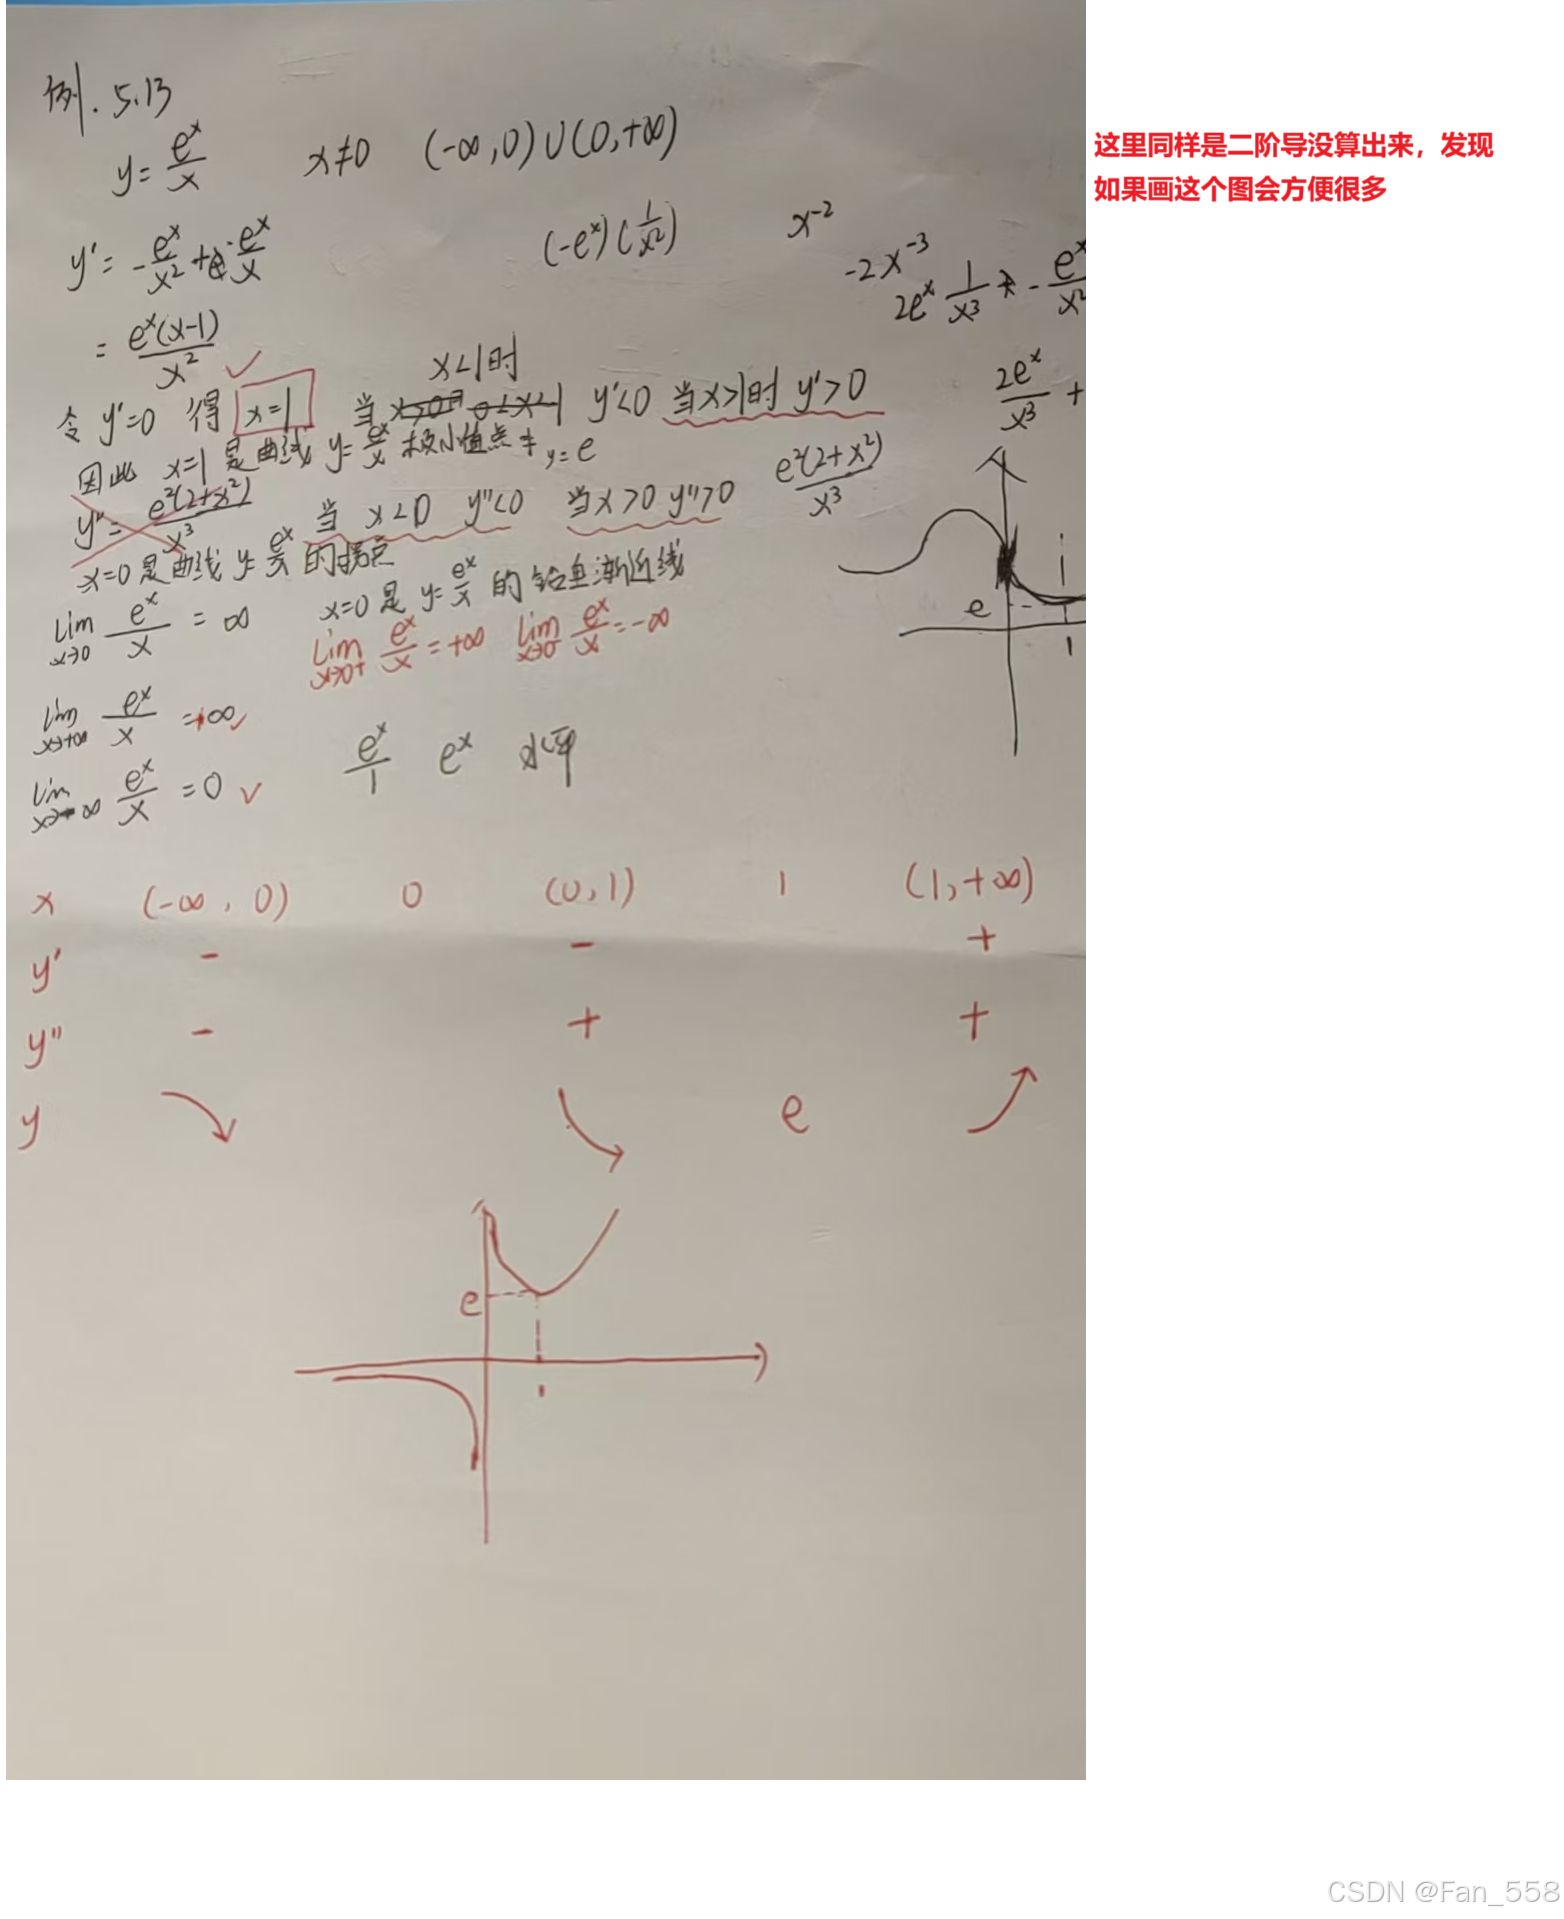 例. 5.13
y = e^x/x   x≠0   (-∞,0)∪(0,+∞)
y' = -e^x/x² + e^x/x   (-e^x)(1/x²)   x^-2
-2x^-3
= e^x(x-1)/x²   2e^x 1/x³ - e^x/x²
x<1时   2e^x/x³ +
令 y'=0 得 x=1   当 y'<0 当x>1时 y'>0
因此 x=1 是曲线 y=e^x/x 极小值点 y=e
y''= e²(2+x²)/x³   当 x<0 y''<0   当x>0 y''>0   e²(2+x²)/x³
x=0 是曲线 y=e^x/x 的拐点   x=0 是 y=e^x/x 的铅垂渐近线
lim x→0 e^x/x = ∞   lim x→0+ e^x/x = +∞   lim x→0- e^x/x = -∞
e
1
lim x→+∞ e^x/x = +∞
e^x/1   e^x   水平
lim x→-∞ e^x/x = 0
x   (-∞, 0)   0   (0,1)   1   (1,+∞)
y'   -   -   +
y''   -   +   +
y   e
e
1
这里同样是二阶导没算出来，发现
如果画这个图会方便很多
CSDN @Fan_558